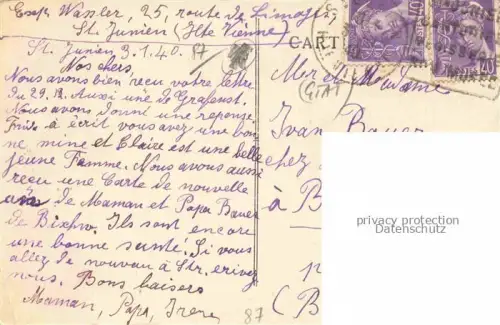 Exp. Wassler, 25, route de Limoges
St. Junien (Hte Vienne)
St. Junien 3.1.40. 87
Nos chers,
Nous avons bien reçu votre lettre
du 29.12. Aussi une de Grafenst.
Nous avons donné une réponse
à écrit vous avez une bon-
ne mine et Claire est une belle
jeune Femme. Nous avons aussi
reçu une Carte de nouvelle
de Maman et Papa Bauer
de Bixhw. Ils sont encore
une bonne santé. Si vous
allez de nouveau à Str. erivez
nous. Bons baisers
Maman, Papa,
87
CARTE
40
40
Mer et Madame
Ivan Bauer
chez
à B
(B
privacy protection
Datenschutz